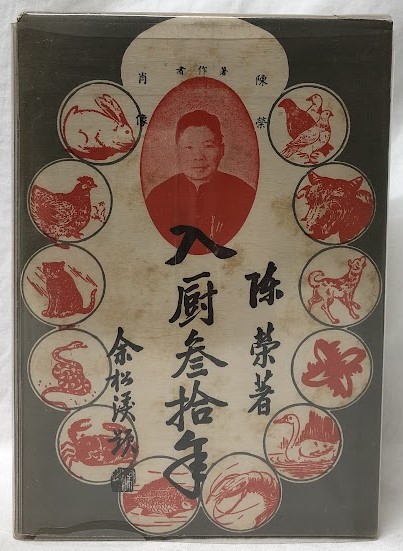 陳榮
著作者
肖像
陳榮著
入厨叁拾年
余松題